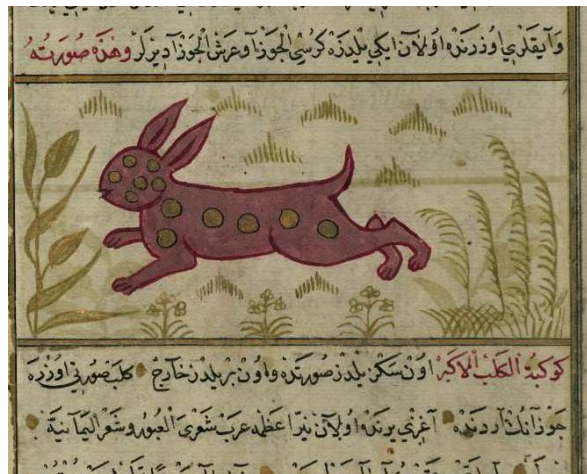 وآيقلري اوزرنده اولان ايكي يلدزه كرسي الجوزا وعرش الجوزا ديرلر وهذه صورته
كوكبة الكلب الاكبر اون سكز يلدز صورتده واون بر يلدز خارج كلب صورتي اوزره
جوزانك آردنده آغزي يرنده اولان نير اعظمه عرب شعرى العبور وشعر اليمانية